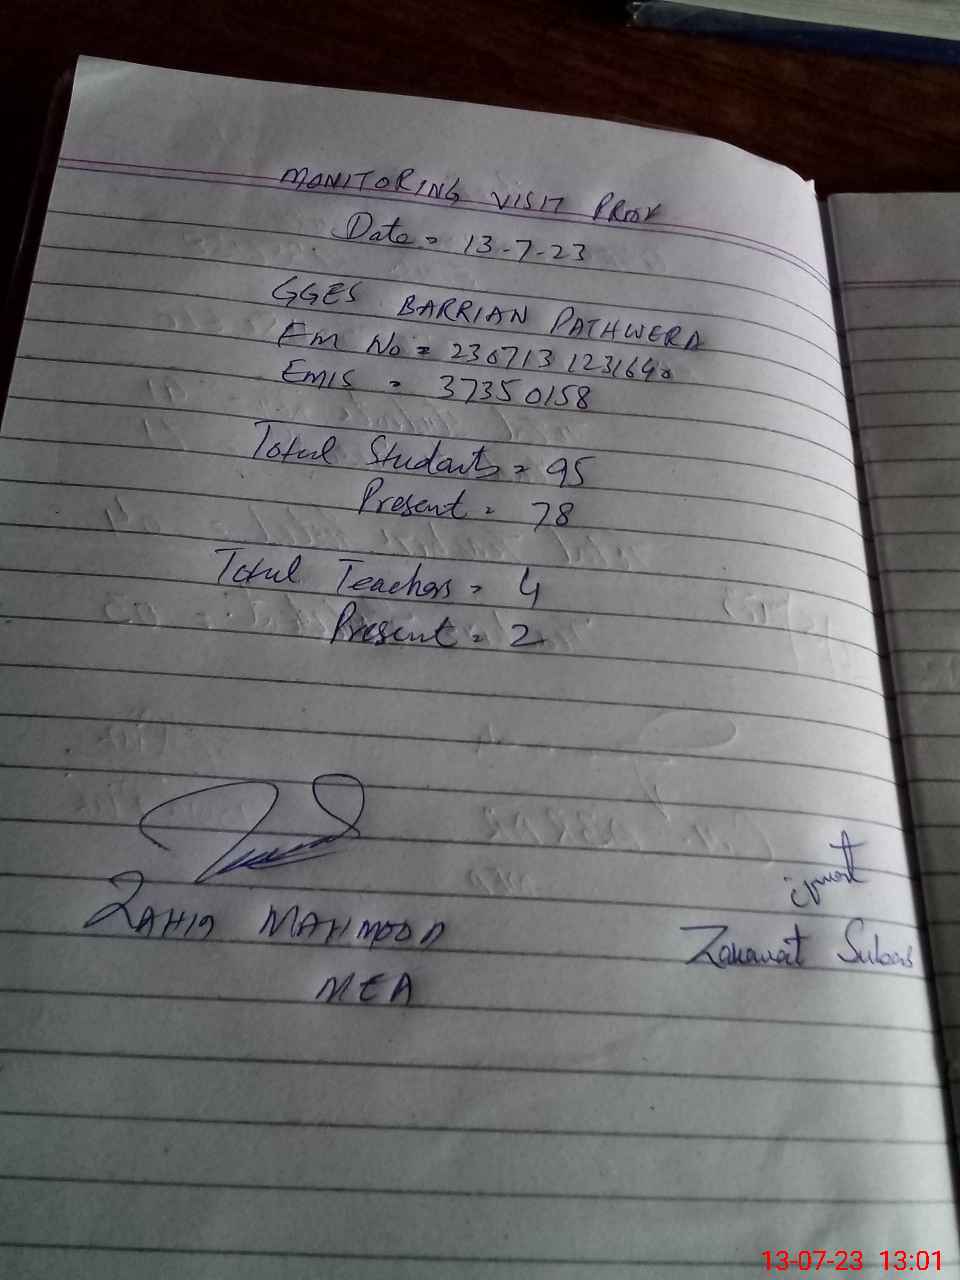 MONITORING VISIT PROOF
Date = 13-7-23
GGES BARRIAN PATHWERA
Em No = 2307131231640
EMIS = 37350158
Total Students = 95
Present = 78
Total Teachers = 4
Present = 2
ZAHID MAHMOOD
MEA
Zakawat
13-07-23 13:01